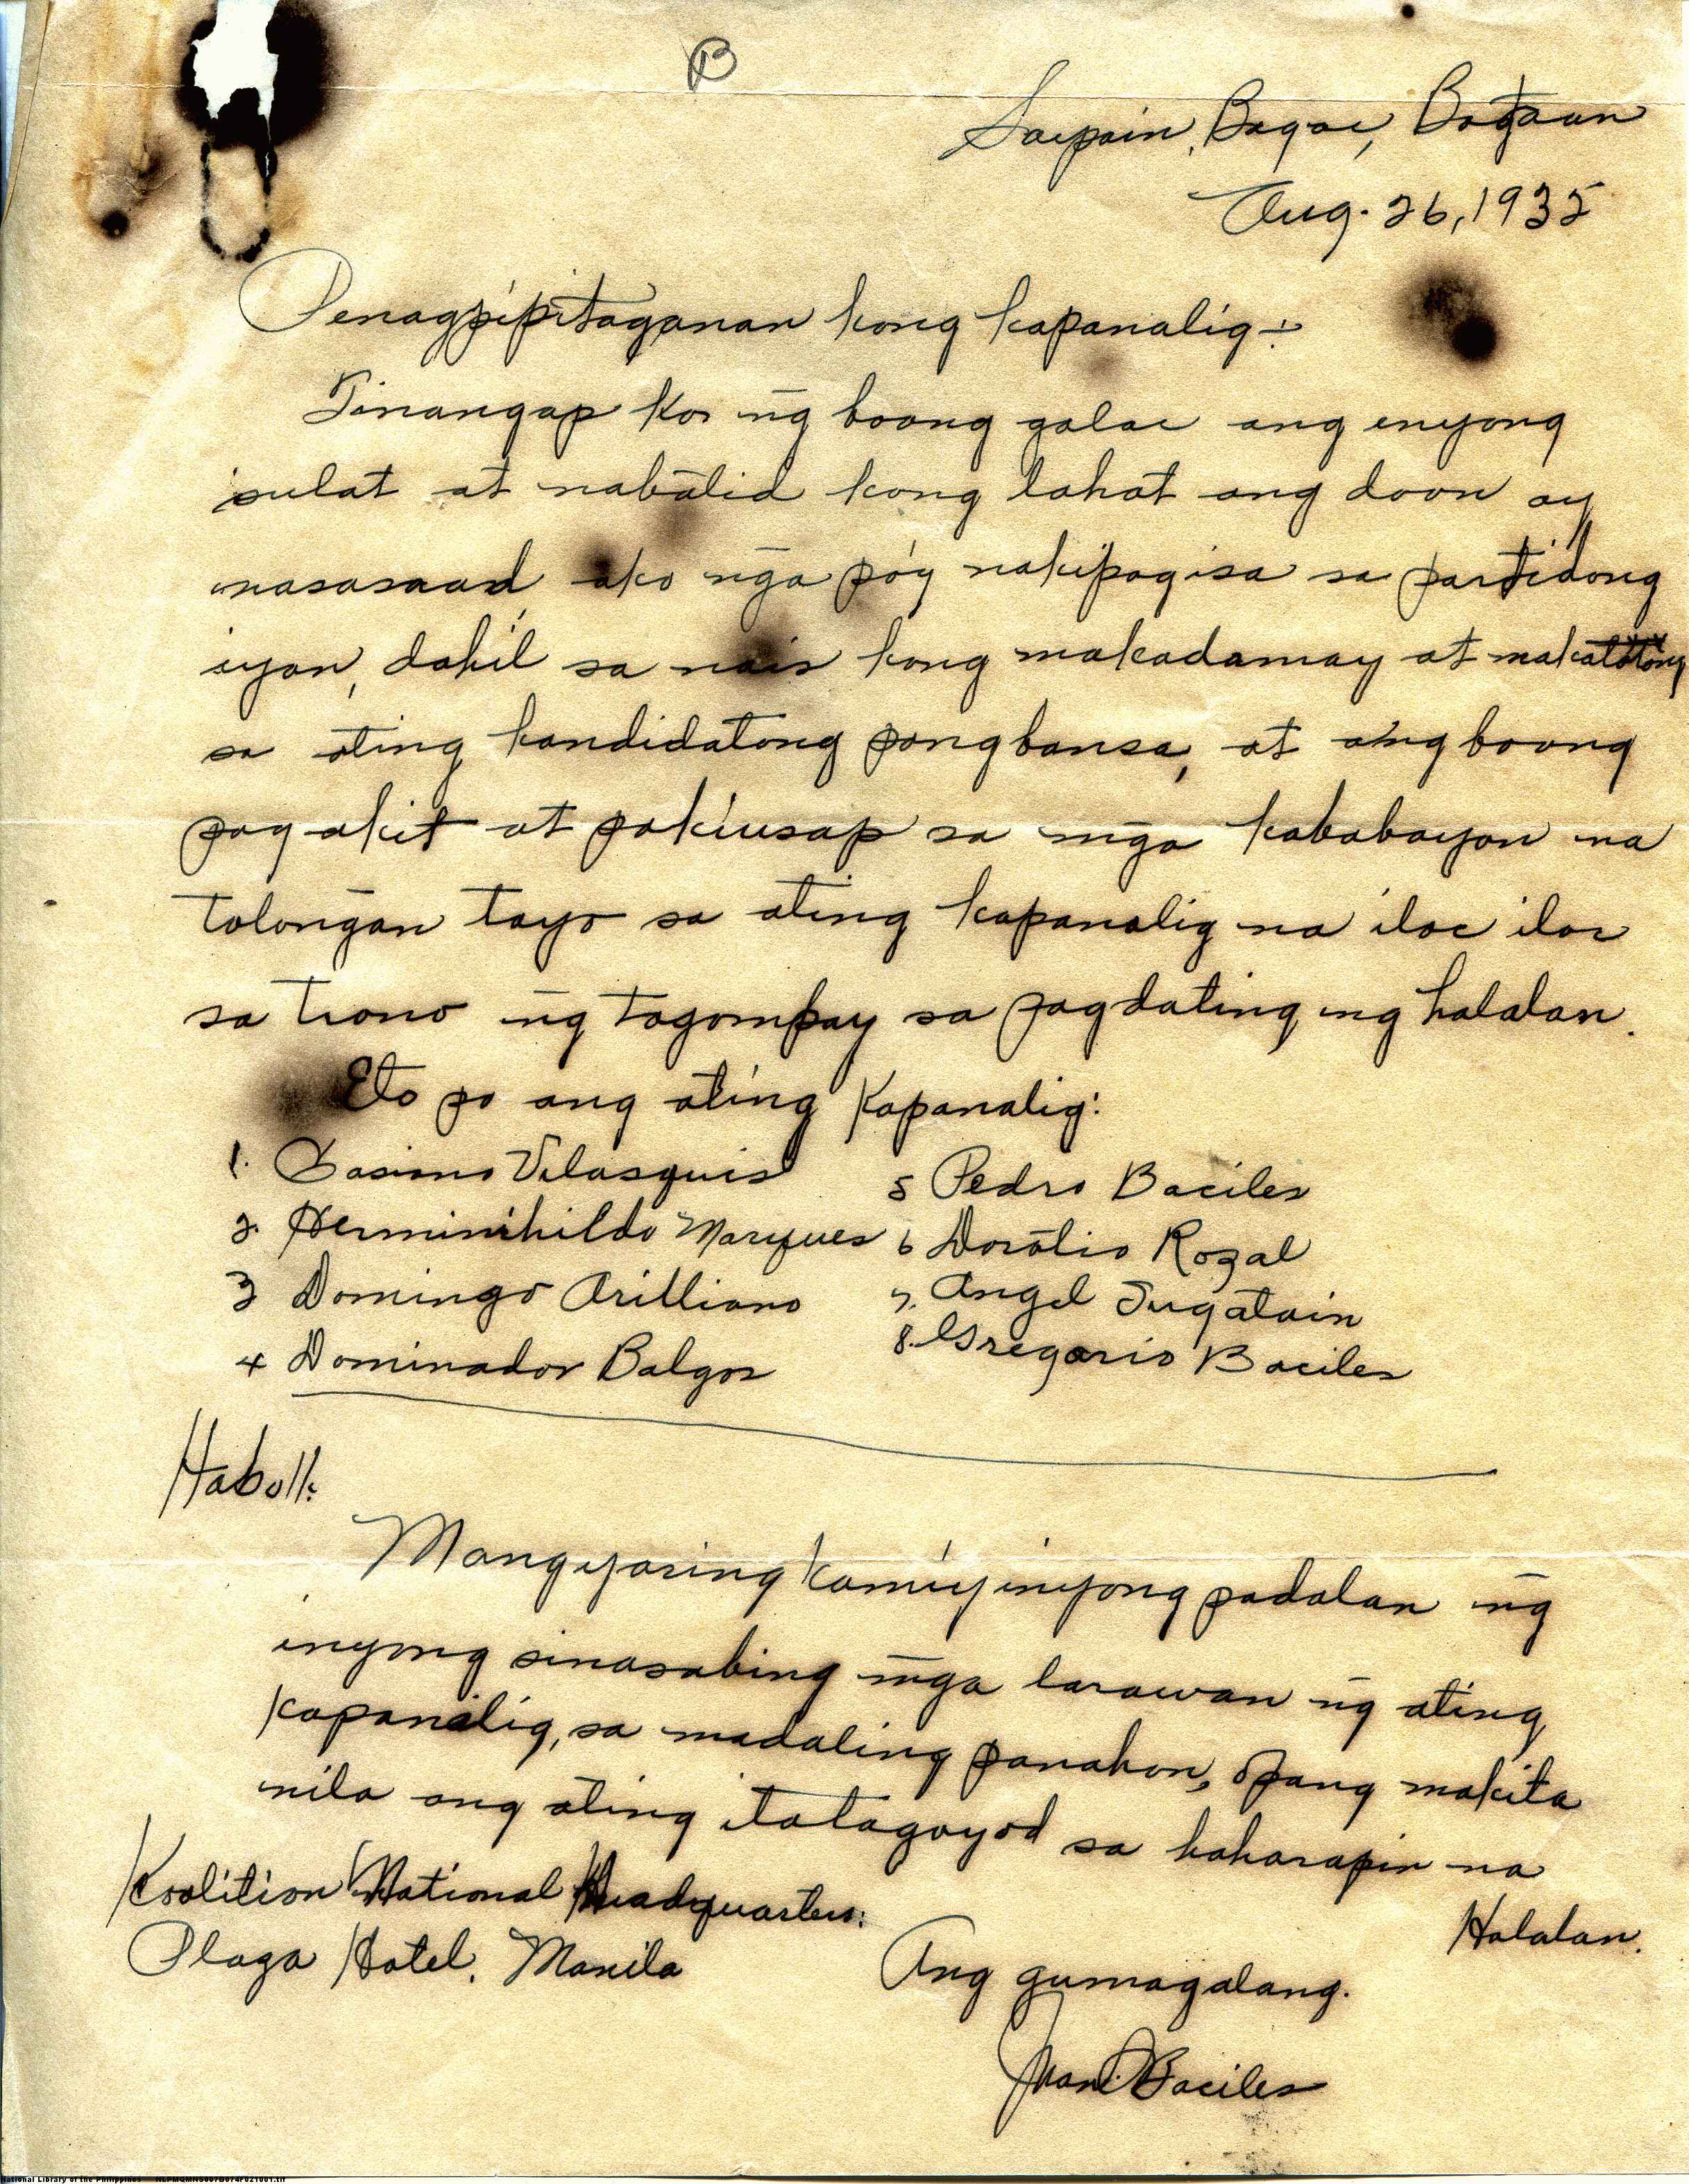 B
Saysain, Bagac, Bataan
Aug. 26, 1935
Penagpipitaganan kong kapanalig:-
Tinangap ko ng boong galac ang enyong
sulat at nabatid kong lahat ang doon ay
nasasaad ako nga po'y nakipagisa sa partidong
iyan, dahil sa nais kong makadamay at makatolong
sa ating kandidatong pangbansa, at ang boong
pag akit at pakiusap sa mga kababayan na
tolongan tayo sa ating kapanalig na iloc iloc
sa trono ng tagompay sa pagdating ng halalan.
Eto po ang ating Kapanalig:
1. Casimo Velasquis
2. Herminihildo Marques
3 Domingo Arilliano
4 Dominador Balgos
5 Pedro Baciles
6 Dorotio Rozal
7. Angel Sugatain
8. Gregorio Baciles
Haboll:
Mangyaring kami'y inyong padalan ng
inyong sinasabing mga larawan ng ating
kapanalig, sa madaling panahon, opang makita
nila ang ating itataguyod sa haharapin na
Halalan.
Koalition National Headquarters:
Plaza Hotel. Manila
Ang gumagalang.
Juan Baciles
National Library of the Philippines